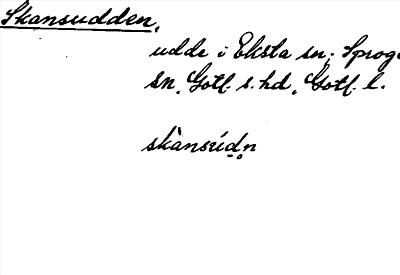 Skansudden,
udde i Eksta sn; Sproge
sn, Gotl. s. hd, Gotl. l.
skànsúd̥n̥